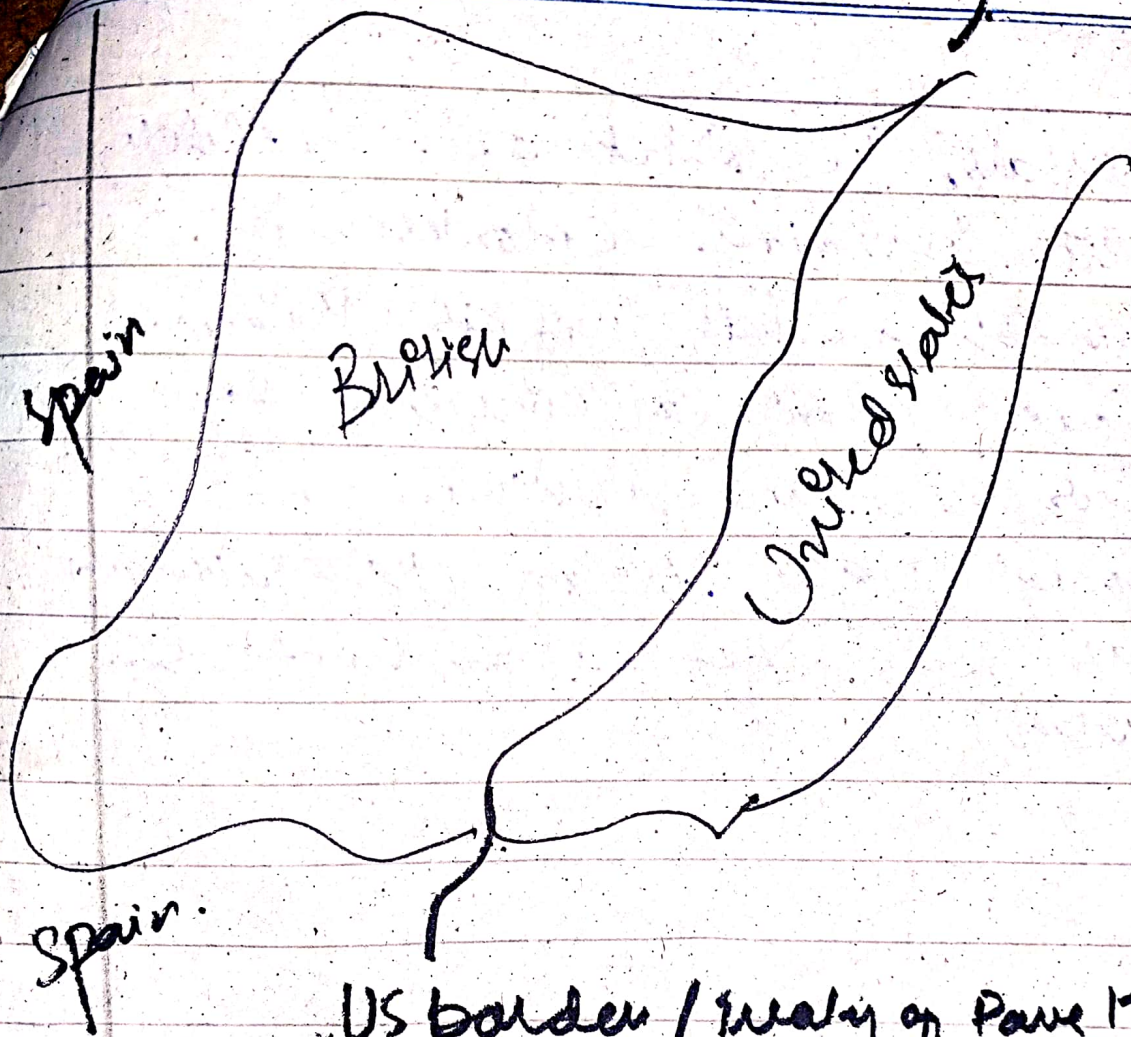 Spain
British
United States
Spain.
US border / treaty of